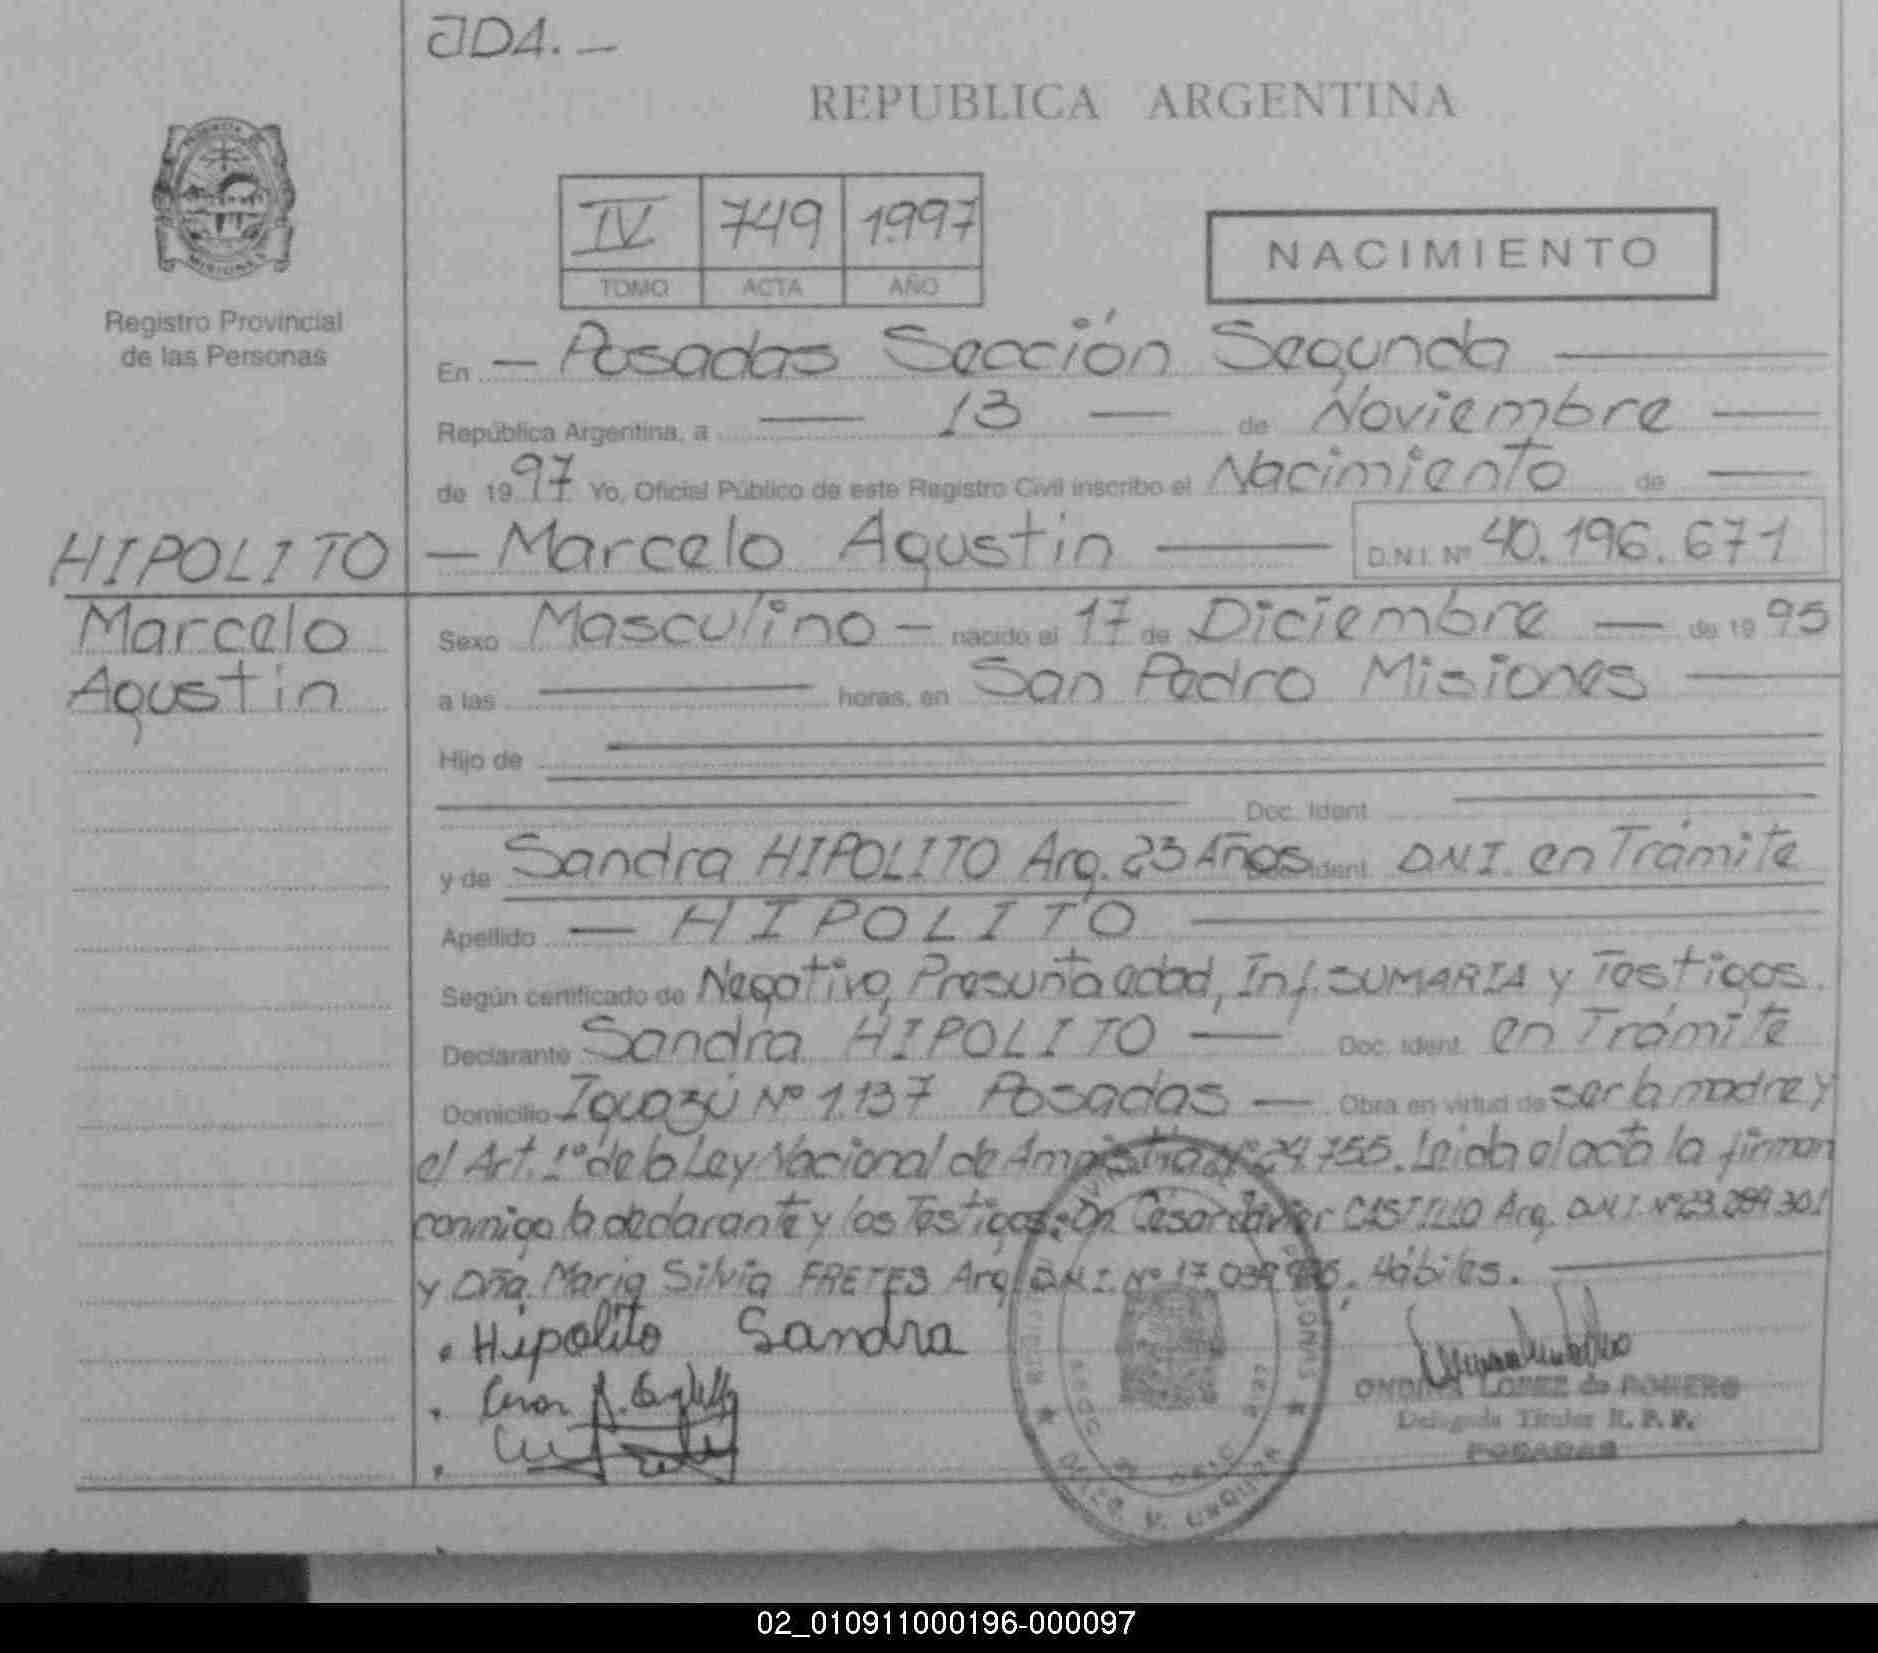 JDA. —
REPUBLICA ARGENTINA
IV 749 1997
TOMO ACTA AÑO
NACIMIENTO
MISIONES
Registro Provincial
de las Personas
En — Posadas Sección Segunda —
República Argentina, a — 13 — de Noviembre —
de 1997 Yo, Oficial Público de este Registro Civil inscribo el Nacimiento de —
HIPOLITO — Marcelo Agustin — D.N.I. Nº 40.196.671
Marcelo
Agustin
Sexo Masculino — nacido el 17 de Diciembre — de 1995
a las — horas, en San Pedro Misiones —
Hijo de —
— Doc. Ident —
y de Sandra HIPOLITO Arg. 23 Años Doc. Ident. D.N.I. en Trámite
Apellido — HIPOLITO —
Según certificado de Negativo, Presunta edad, Inf. SUMARIA y Testigos.
Declarante Sandra HIPOLITO — Doc. Ident. en Trámite
Domicilio Iguazú Nº 1.137 Posadas — Obra en virtud de ser la madre y
el Art. 1º de la Ley Nacional de Amnistía Nº 24.755. Leida el acta la firman
conmigo la declarante y los Testigos: Dn. Cesar Javier CASTILLO Arg. D.N.I. Nº 23.289.301
y Dña. Maria Silvia FRETES Arg. D.N.I. Nº 17.039. Hábiles. —
. Hipolito Sandra
ONDINA LOPEZ de ROMERO
Delegada Titular R. P. P.
POSADAS
02_010911000196-000097